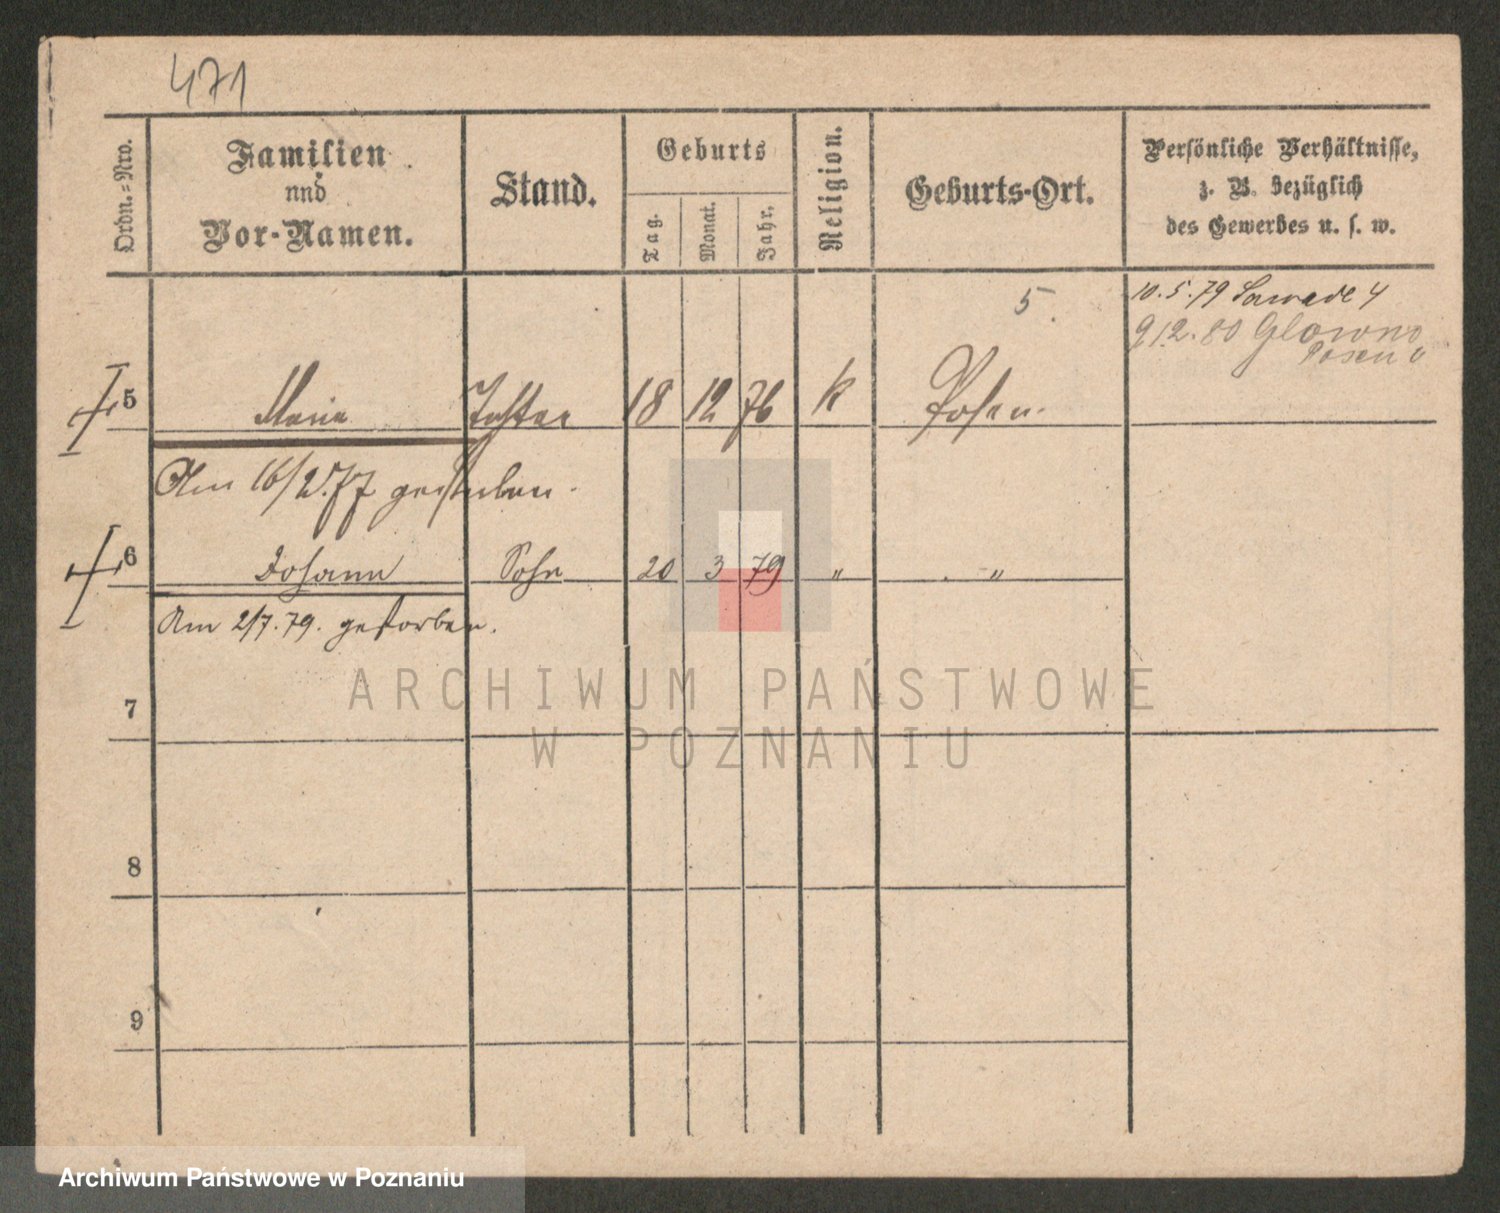 471
Ordn.=Nro.
Familien
und
Vor-Namen.
Stand.
Geburts
Tag.
Monat.
Jahr.
Religion.
Geburts-Ort.
Persönliche Verhältnisse,
z. B. bezüglich
des Gewerbes u. s. w.
5.
10.5.79 Sawade 4
9 12.80 Glowno
Posen
5 Marie Tochter 18 12 76 k Posen.
Am 16/2.77 gestorben.
6 Johann Sohn 20 3 79 " "
Am 2/7.79. gestorben.
7
8
9
ARCHIWUM PAŃSTWOWE
W POZNANIU
Archiwum Państwowe w Poznaniu